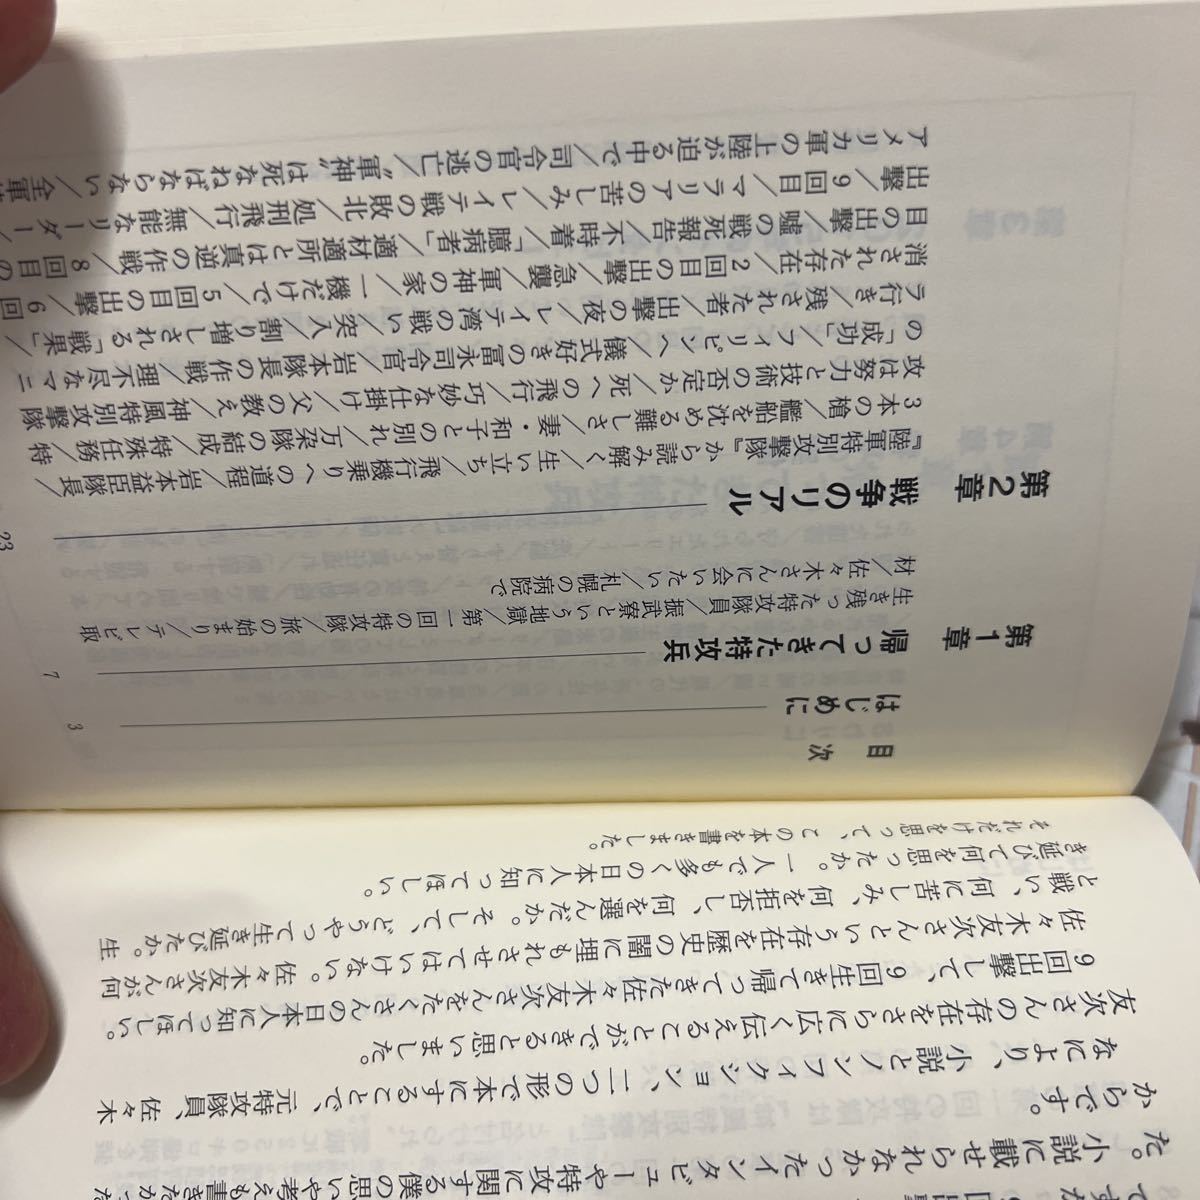 た。小説に載せられなかったインタビューや特攻に関する僕の思いや考えも書きたかった
からです。
なにより、小説とノンフィクション、二つの形で本にすることで、元特攻隊員、佐々木
友次さんの存在をさらに広く伝えることができると思いました。
9回出撃して、9回生きて帰ってきた佐々木友次さんをたくさんの日本人に知ってほしい。
佐々木友次さんという存在を歴史の闇に埋もれさせてはいけない。佐々木友次さんが何
と戦い、何に苦しみ、何を拒否し、何を選んだか。そして、どうやって生き延びたか。生
き延びて何を思ったか。一人でも多くの日本人に知ってほしい。
それだけを思って、この本を書きました。
目次
はじめに 3
第1章 帰ってきた特攻兵 7
生き残った特攻隊員/振武寮という地獄/第一回の特攻隊/旅の始まり/テレビ取
材/佐々木さんに会いたい/札幌の病院で
第2章 戦争のリアル 23
『陸軍特別攻撃隊』から読み解く/生い立ち/飛行機乗りへの道程/岩本益臣隊長/
3本の槍/艦船を沈める難しさ/妻・和子との別れ/万朶隊の結成/特殊任務/特
攻は努力と技術の否定か/死への飛行/巧妙な仕掛け/父の教え/神風特別攻撃隊
の「成功」/フィリピンへ/儀式好きの冨永司令官/岩本隊長の作戦/理不尽なマニ
ラ行き/残された者/出撃の夜/レイテ湾の戦い/突入/割り増しされる「戦果」/
消された存在/2回目の出撃/急襲/軍神の家/一機だけで/5回目の出撃/6回
目の出撃/嘘の戦死報告/不時着/「臆病者」/適材適所とは真逆の作戦/8回目の
出撃/9回目/マラリアの苦しみ/レイテ戦の敗北/処刑飛行/無能なリーダー/
アメリカ軍の上陸が迫る中で/司令官の逃亡/〝軍神〟は死なねばならない/全軍